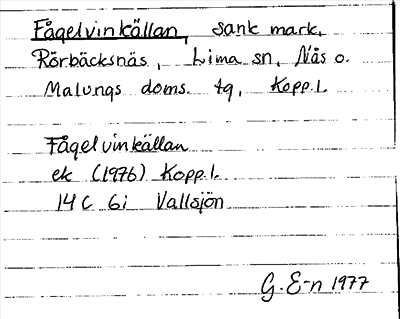 Fågelvinkällan, sank mark,
Rörbäcksnäs, Lima sn, Nås o.
Malungs doms. tg, Kopp. l.
Fågelvinkällan
ek (1976) Kopp. l.
14 C 6i Vallsjön
G. E-n 1977